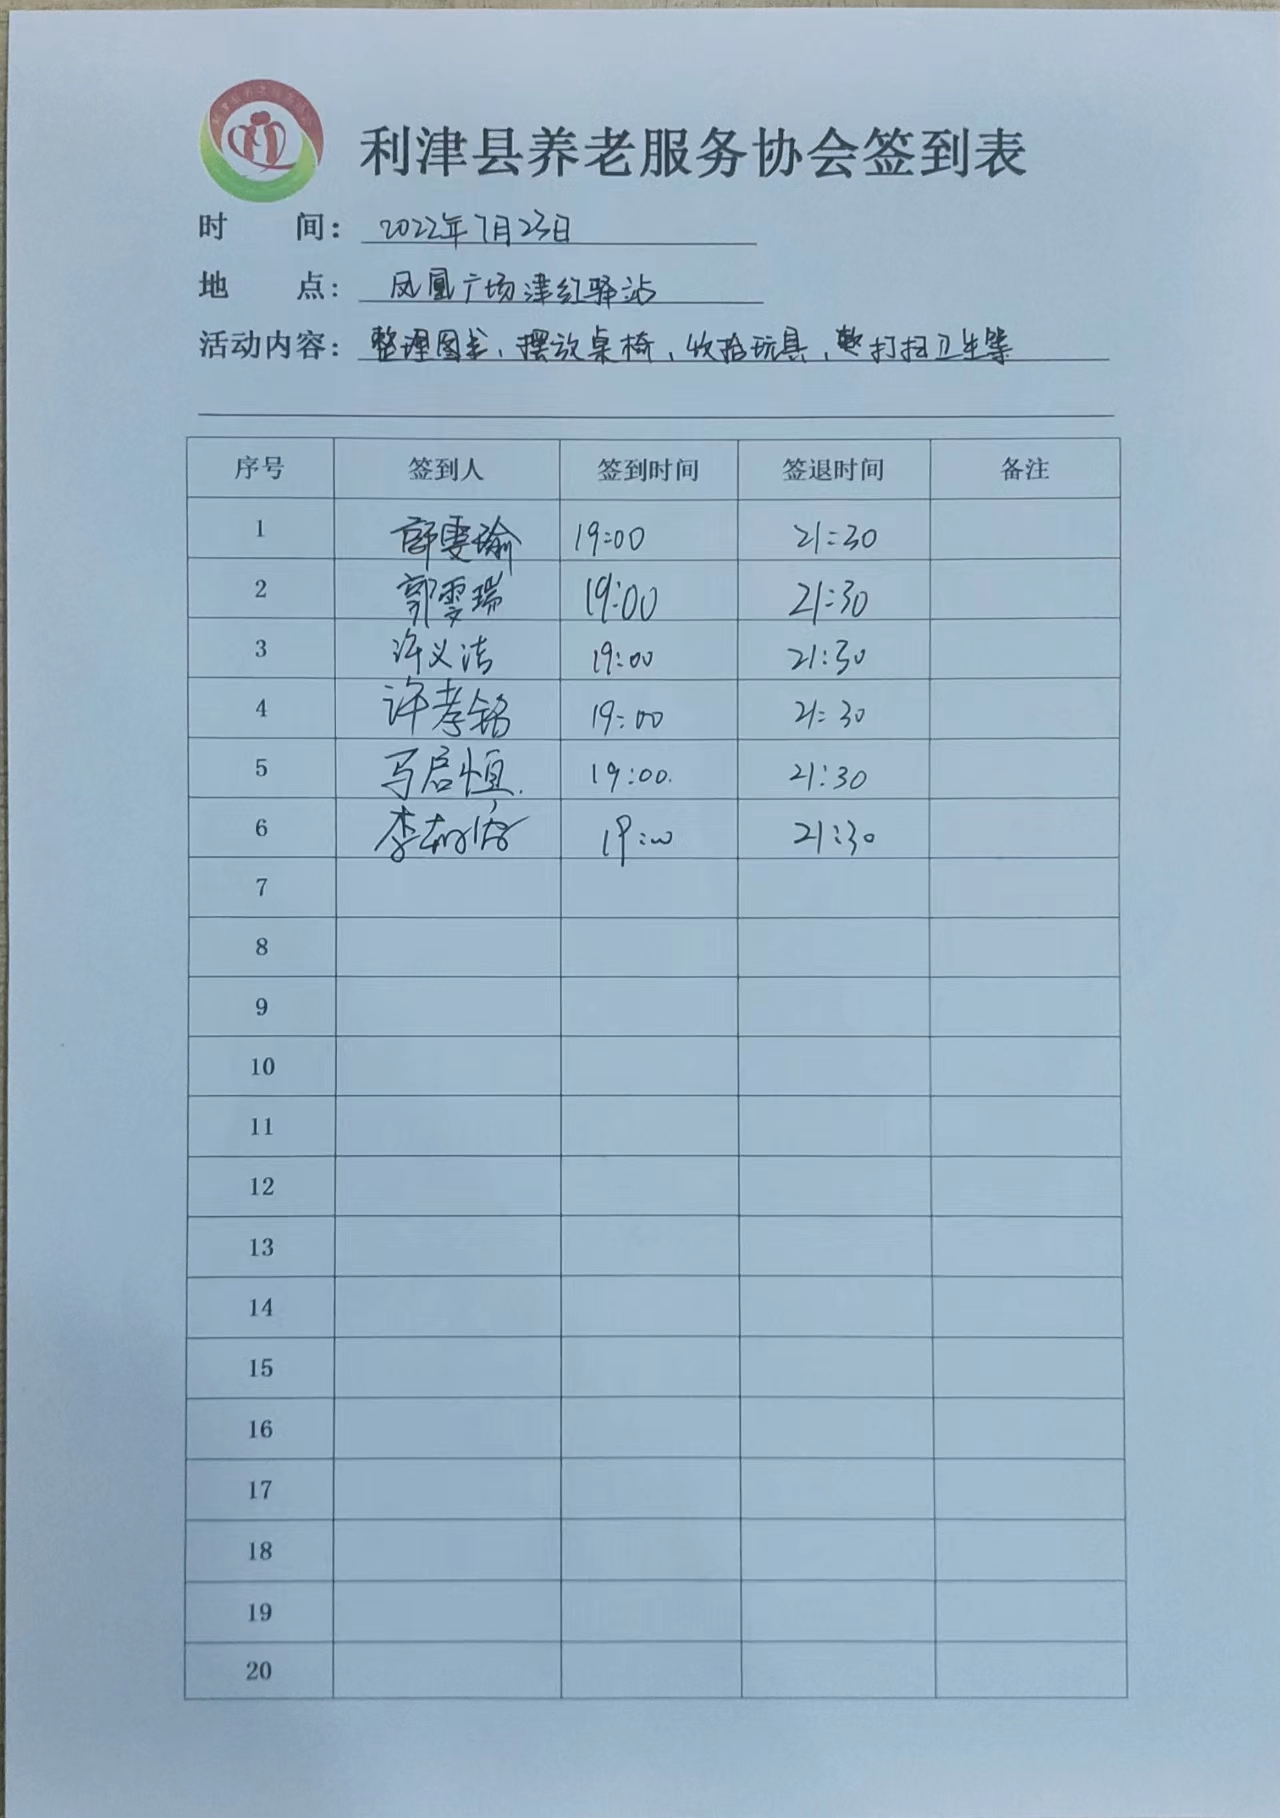 利津县养老服务协会签到表
时 间： 2022年7月23日
地 点： 凤凰广场津红驿站
活动内容： 整理图书、摆放桌椅，收拾玩具，打扫卫生等
序号 签到人 签到时间 签退时间 备注
1 郭雯瑜 19:00 21:30
2 郭雯瑞 19:00 21:30
3 许义洁 19:00 21:30
4 许孝铭 19:00 21:30
5 马启恒. 19:00. 21:30
6 李 19:00 21:30
7
8
9
10
11
12
13
14
15
16
17
18
19
20